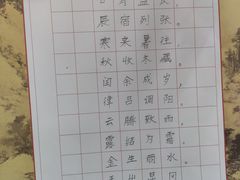 辰宿列张。
寒来暑往,
秋收冬藏。
闰余成岁,
律吕调阳。
云腾致雨,
露结为霜。
金生丽水,